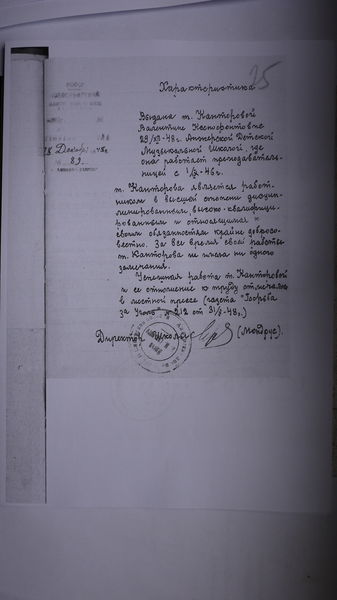 35
Характеристика
РСФСР
28 Декабр 48
№ 89
Выдана т. Канторовой
Валентине Ксенофонтовне
29/XII-48г. Анжерской Детской
Музыкальной Школой, где
она работает преподаватель-
ницей с 1/IX-46г.
т. Канторова является работ-
ником в высшей степени дисцип-
линированным, высоко-квалифици-
рованным и относящимся к
своим обязанностям крайне добросо-
вестно. За все время своей работы
т. Канторова не имела ни одного
замечания.
Успешная работа т. Канторовой
и ее отношение к труду отмечались
в местной прессе (газета "Борьба
за Уголь" № 212 от 31/X-48г.)
Директор школы